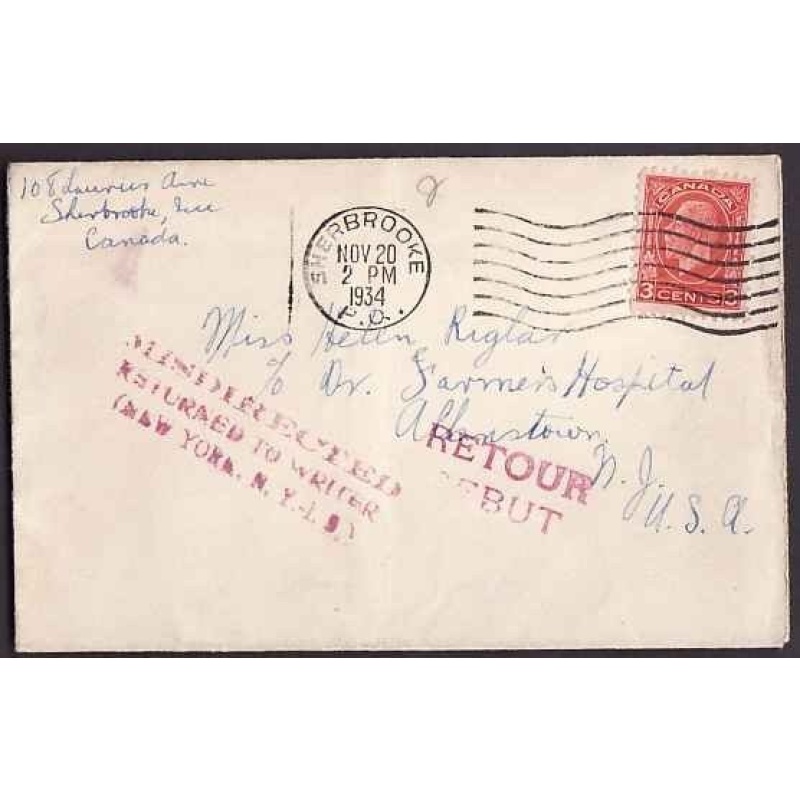 108 Ave
Sherbrooke, Que
Canada.
SHERBROOKE
NOV 20
2 PM
1934
P.Q.
CANADA
3 CENTS 3
Miss Helen Riglar
c/o Dr. Farmer's Hospital
Allenstown,
N. J.
U. S. A.
MISDIRECTED
RETURNED TO WRITER
(NEW YORK, N. Y.
RETOUR
REBUT